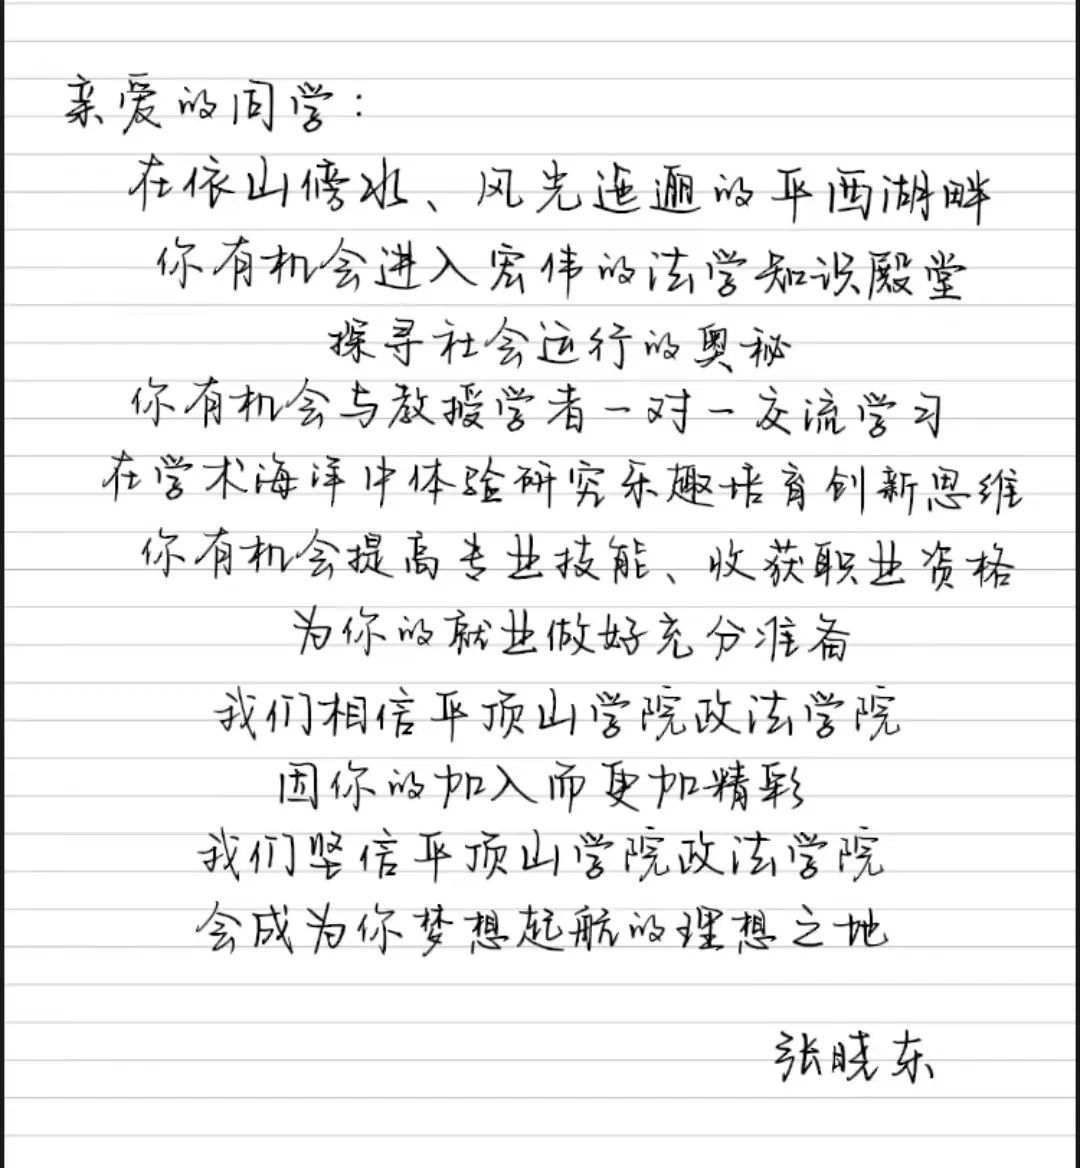 亲爱的同学：
在依山傍水、风光迤逦的平西湖畔
你有机会进入宏伟的法学知识殿堂
探寻社会运行的奥秘
你有机会与教授学者一对一交流学习
在学术海洋中体验研究乐趣培育创新思维
你有机会提高专业技能、收获职业资格
为你的就业做好充分准备
我们相信平顶山学院政法学院
因你的加入而更加精彩
我们坚信平顶山学院政法学院
会成为你梦想起航的理想之地
张晓东